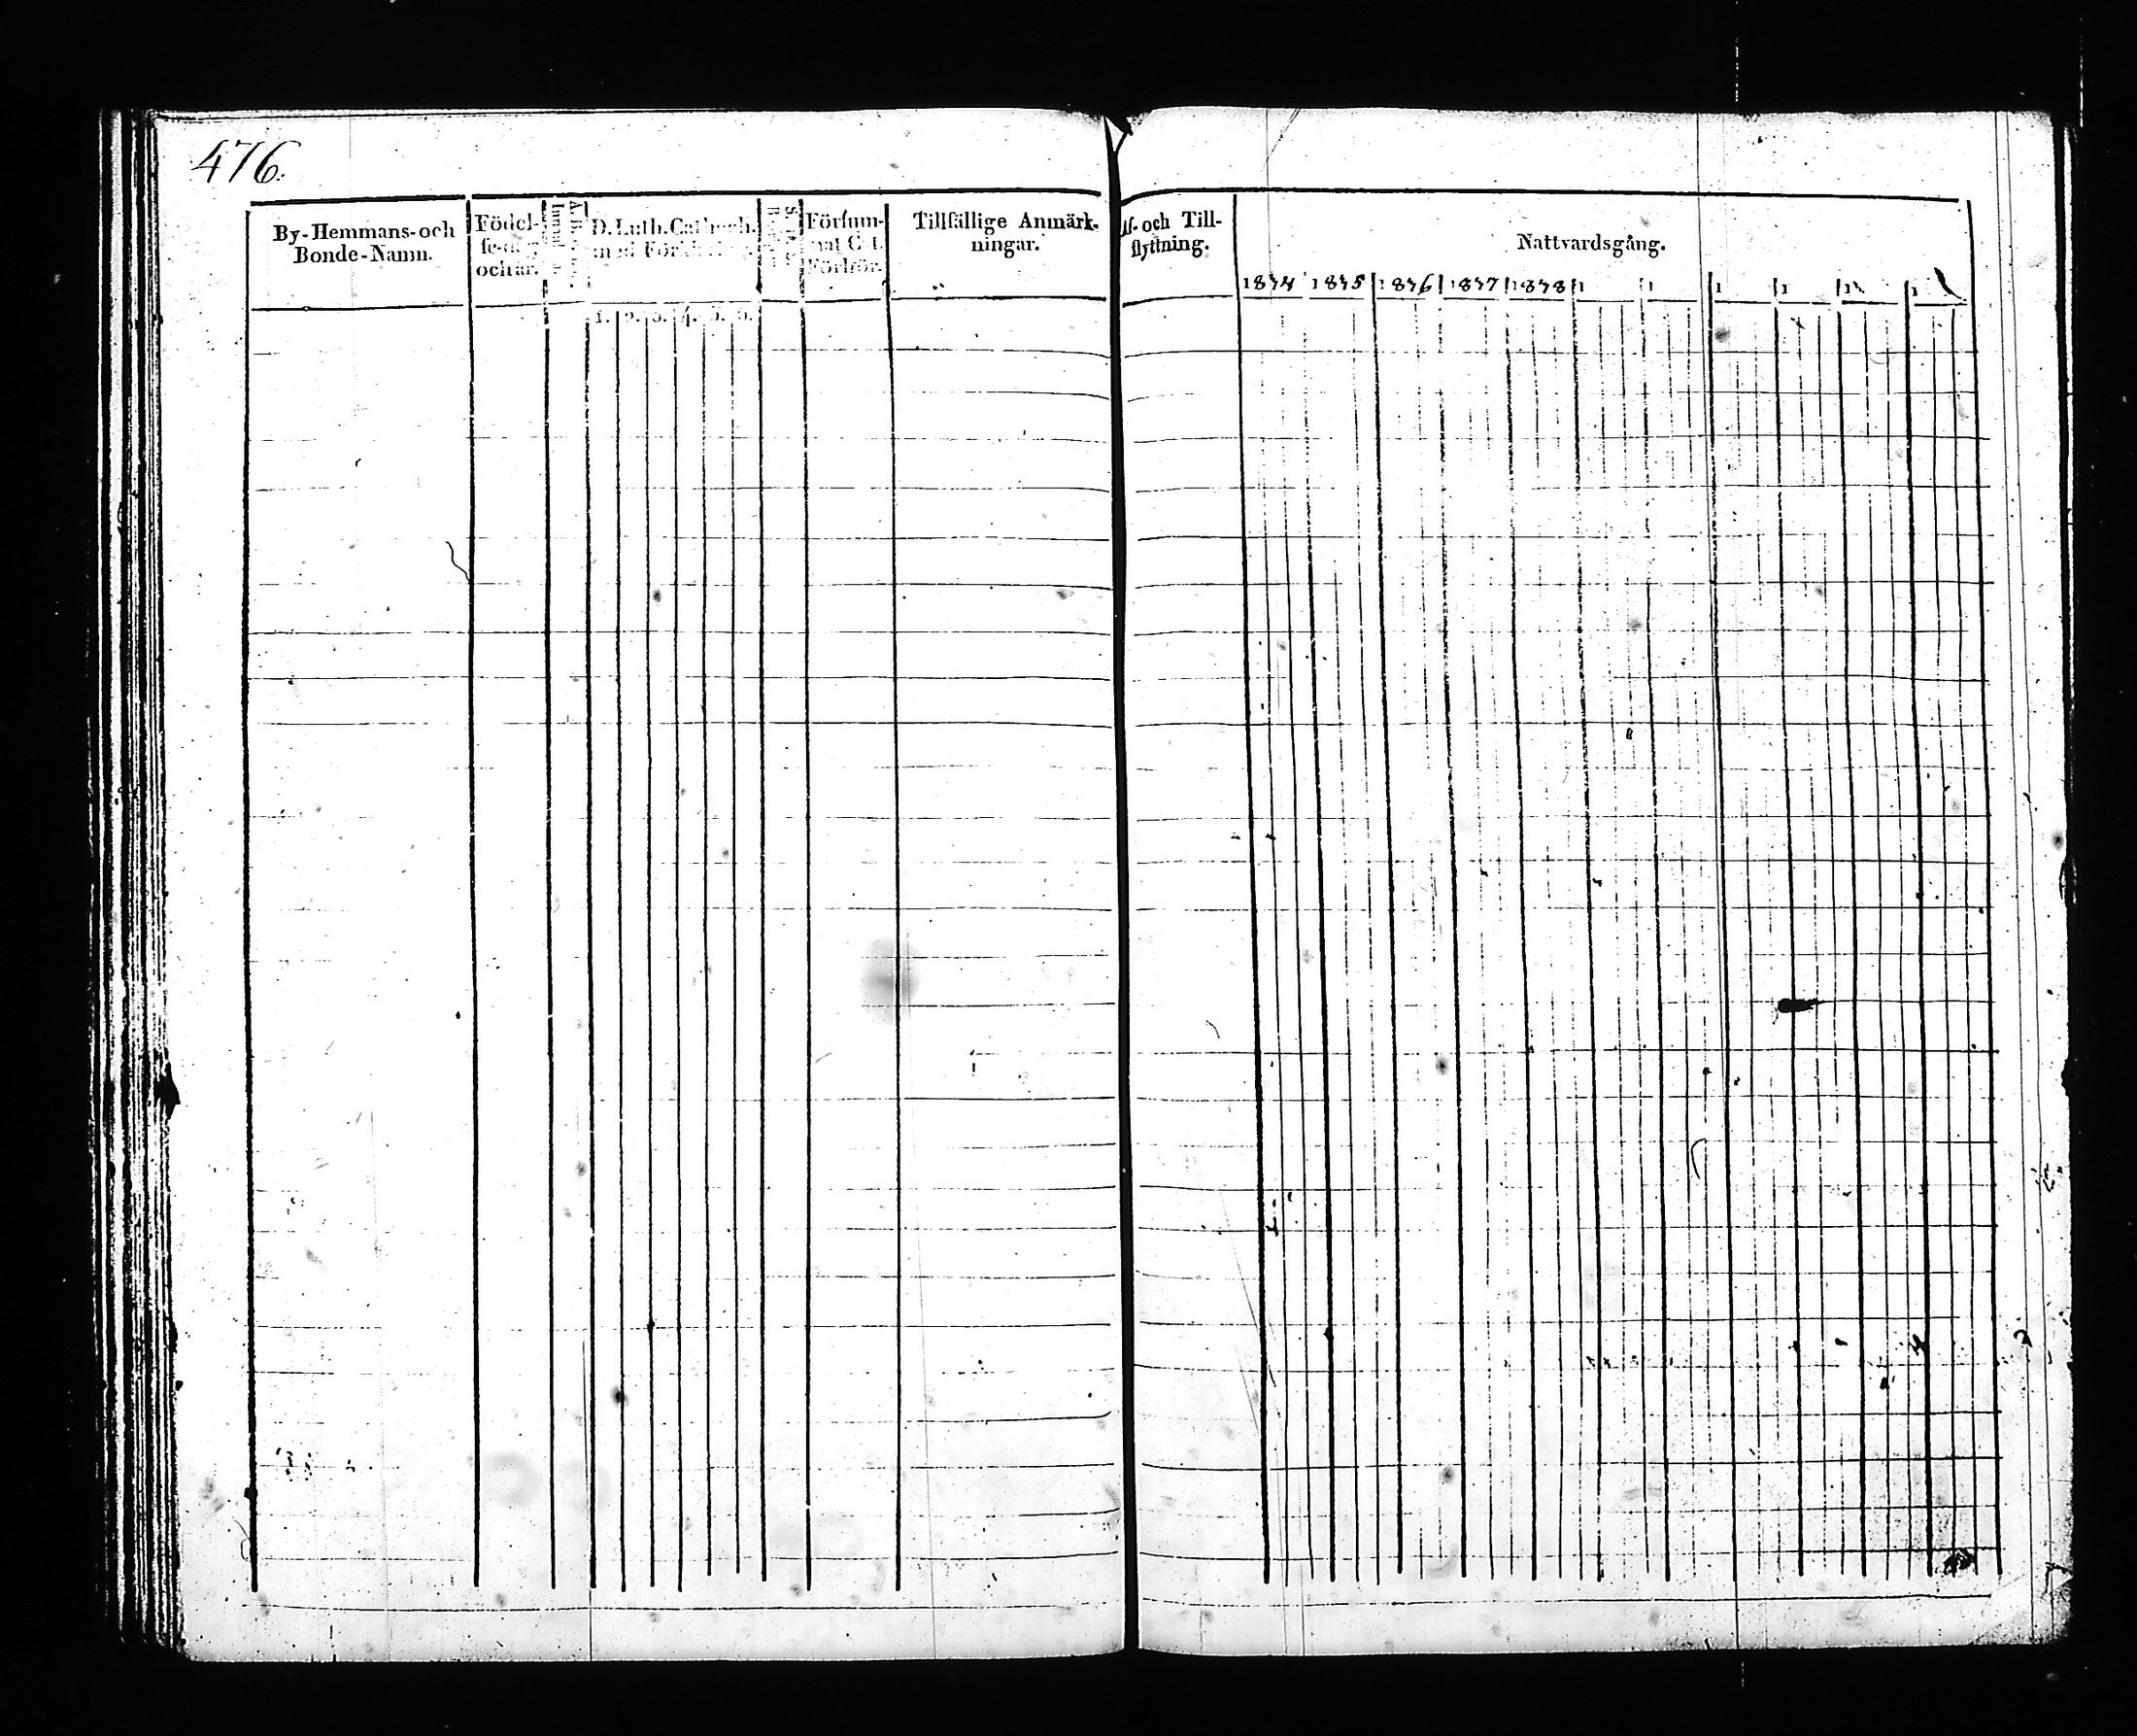 476.
By-Hemmans-och
Bonde-Namn.
Födel-
och år.
D. Luth. Cathech.
med
1. 2. 3. 4. 5. 6.
Försum-
Förhör.
Tillfällige Anmärk-
ningar.
Af- och Till-
flyttning.
Nattvardsgång.
1834 1835 1836 1837 1838 1 1 1 1 1 1